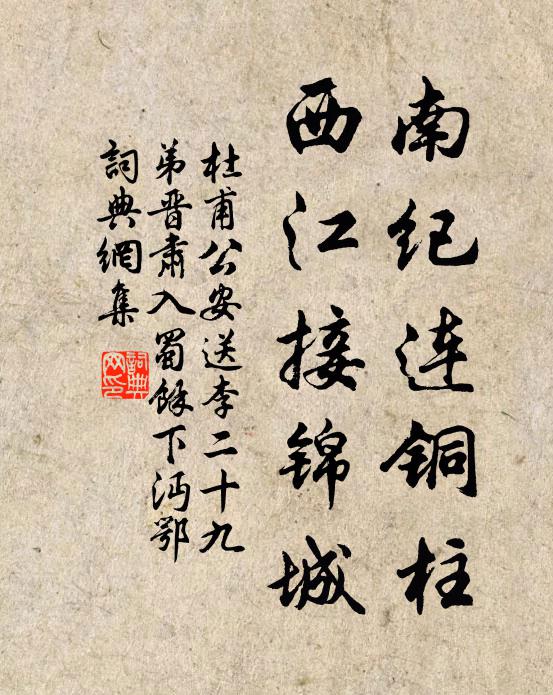 南纪连铜柱
西江接锦城
杜甫公安送李二十九
弟晋肃入蜀馀下沔鄂
詞典網集
詞典
网印